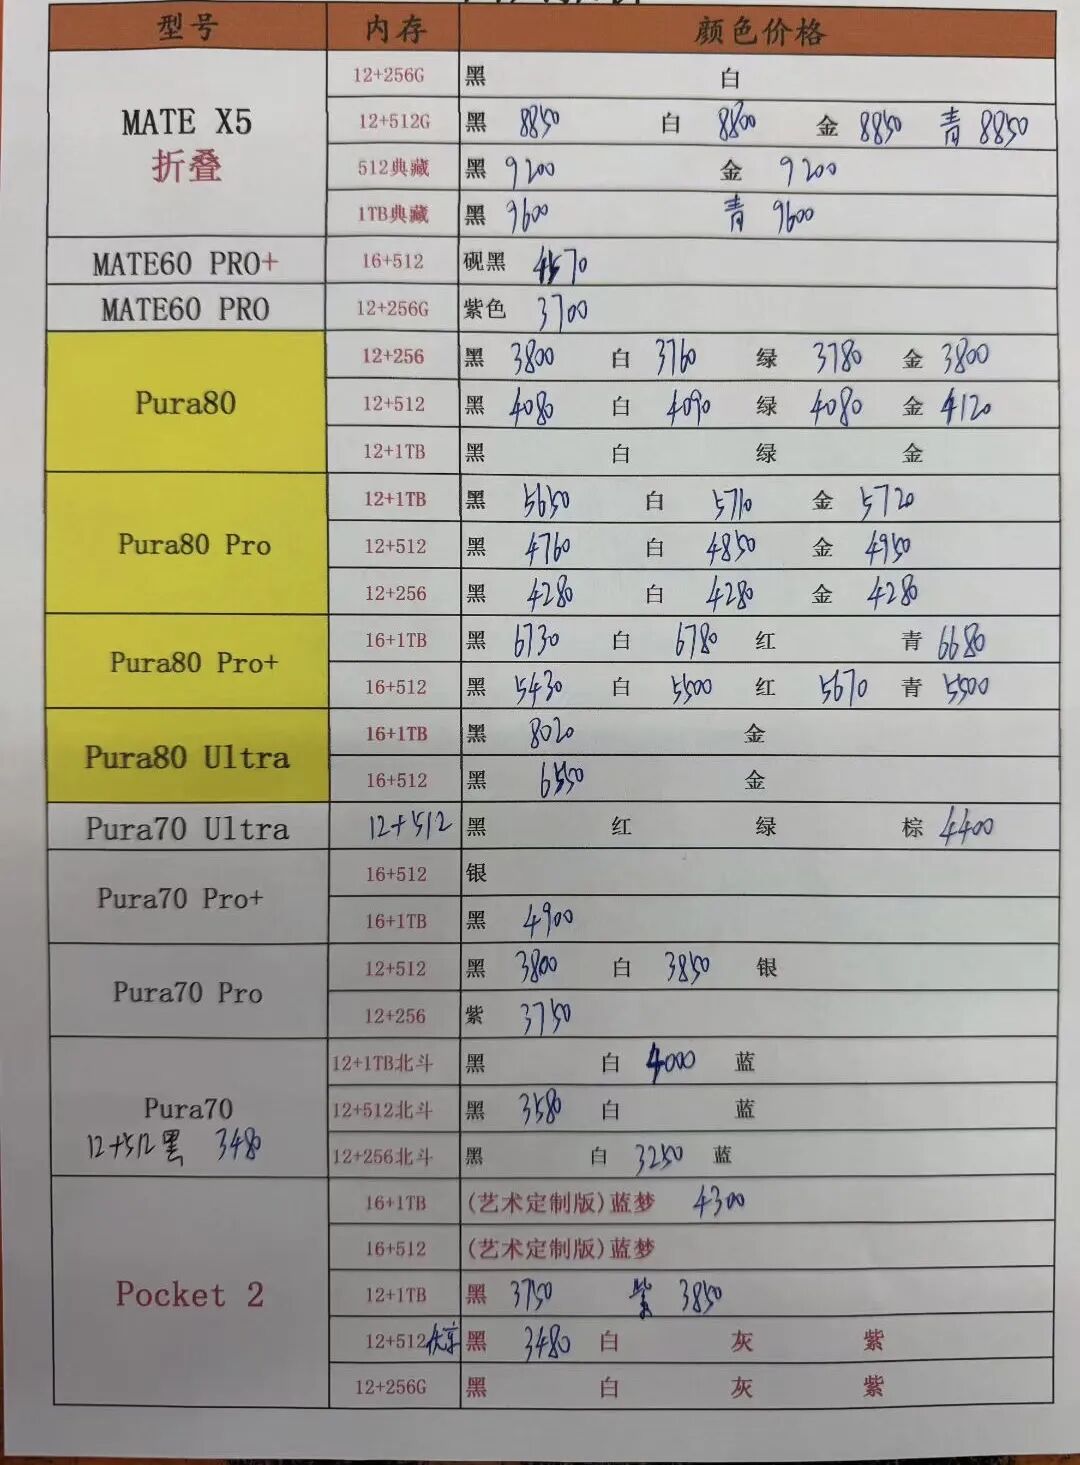 型号 内存 颜色价格
MATE X5 折叠
12+256G 黑 白
12+512G 黑 8850 白 8800 金 8850 青 8850
512典藏 黑 9200 金 9200
1TB典藏 黑 9600 青 9600
MATE60 PRO+ 16+512 砚黑 4570
MATE60 PRO 12+256G 紫色 3700
Pura80
12+256 黑 3800 白 3760 绿 3780 金 3800
12+512 黑 4080 白 4090 绿 4080 金 4120
12+1TB 黑 白 绿 金
Pura80 Pro
12+1TB 黑 5650 白 5710 金 5720
12+512 黑 4760 白 4850 金 4950
12+256 黑 4280 白 4280 金 4280
Pura80 Pro+
16+1TB 黑 6730 白 6780 红 青 6680
16+512 黑 5430 白 5500 红 5670 青 5500
Pura80 Ultra
16+1TB 黑 8020 金
16+512 黑 6550 金
Pura70 Ultra 12+512 黑 红 绿 棕 4400
Pura70 Pro+
16+512 银
16+1TB 黑 4900
Pura70 Pro
12+512 黑 3800 白 3850 银
12+256 紫 3750
Pura70
12+512黑 3480
12+1TB北斗 黑 白 4000 蓝
12+512北斗 黑 3580 白 蓝
12+256北斗 黑 白 3250 蓝
Pocket 2
16+1TB (艺术定制版)蓝梦 4300
16+512 (艺术定制版)蓝梦
12+1TB 黑 3750 紫 3850
12+512 黑 3480 白 灰 紫
12+256G 黑 白 灰 紫